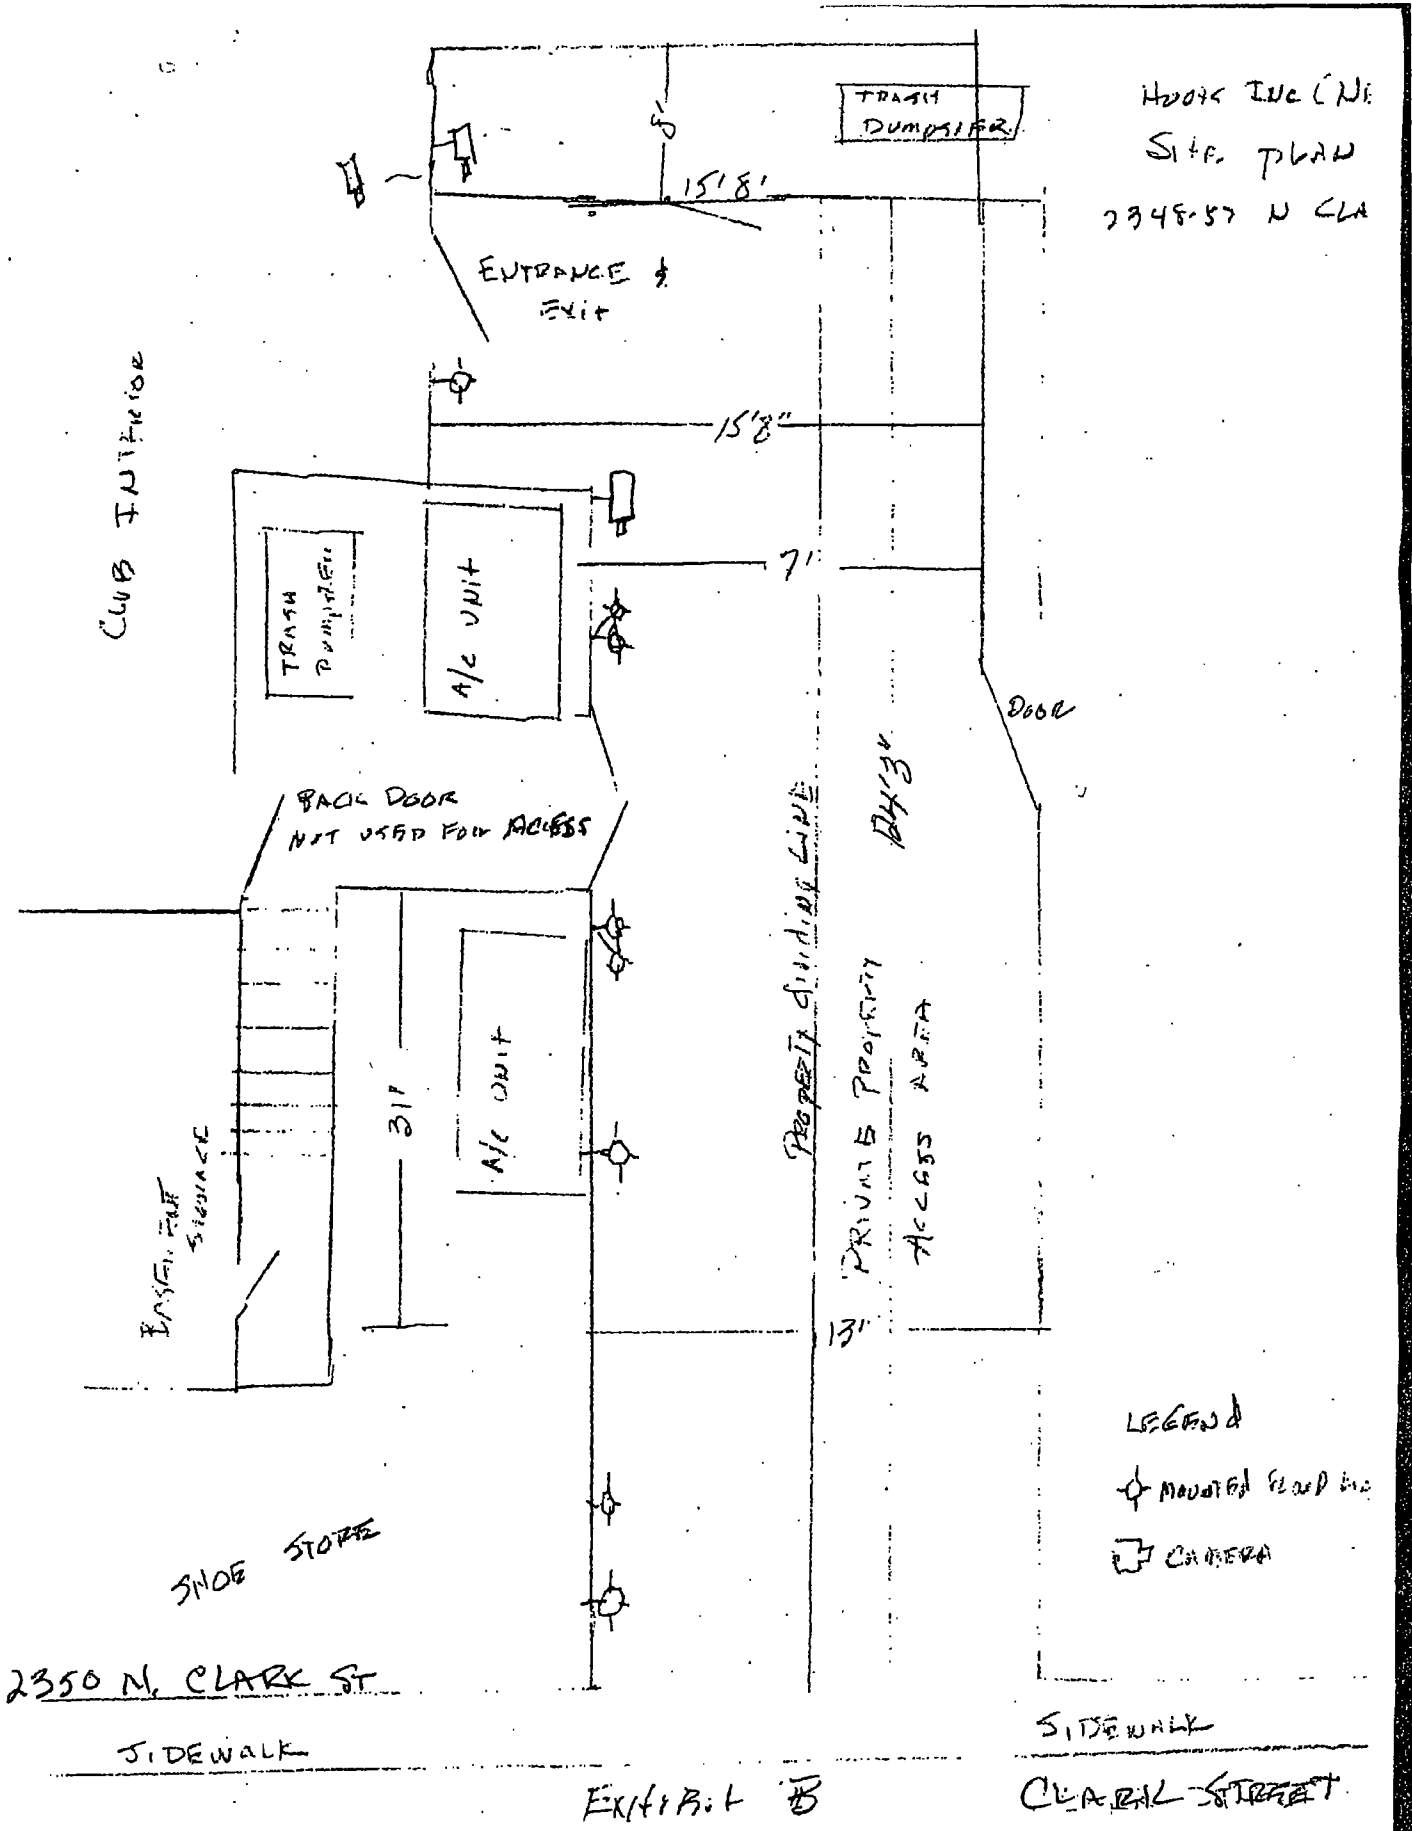 TRASH
DUMPSTER
Site PLAN
2348-57 N CLA
8'
15'8'
ENTRANCE &
Exit
CLUB INTERIOR
15'8"
7'
TRASH
Dumpster
A/C UNit
DOOR
BACK DOOR
NOT USED FOR ACCESS
24'3"
PROPERTY dividing LINE
PRIVATE PROPERTY
ACCESS AREA
31'
A/C UNit
BASEMENT
13'
LEGENd
MOUNTEd FLOOD
CAMERA
SHOE STORE
2350 N. CLARK ST
SIDEWALK
SIDEWALK
ExHiBit B
CLARK STREET